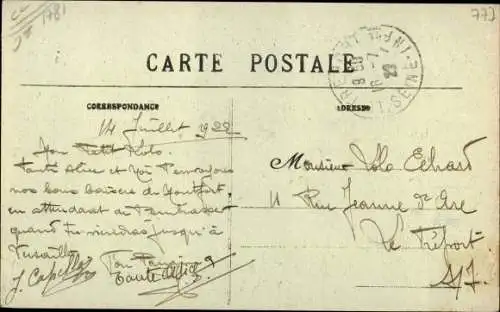 773
CARTE POSTALE
CORRESPONDANCE
ADRESSE
14 Juillet 1922
Mon Petit Lolo
Tante Alice et Moi t'envoyons
nos bons baisers de Montfort,
en attendant de t'embrasser
quand tu viendras jusqu'à
Versailles
Ton
Tante Alice
J. Capella
Monsieur Lolo
11 Rue Jeanne d'Arc
Le Tréport
S/I